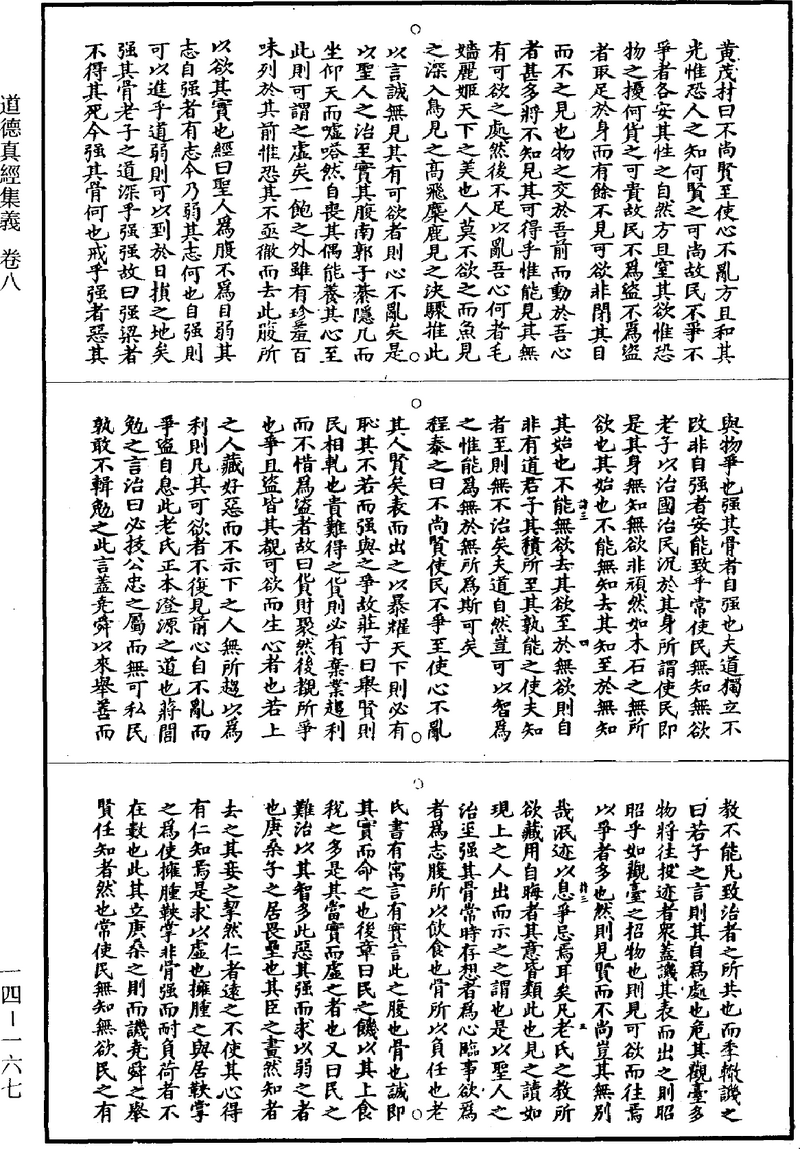 道德真經集義　卷八
黃茂材曰不尚賢至使心不亂方且和其
光惟恐人之知何賢之可尚故民不爭不
爭者各安其性之自然方且窒其欲惟恐
物之擾何貨之可貴故民不為盜不為盜
者取足於身而有餘不見可欲非閉其目
而不之見也物之交於吾前而動於吾心
者甚多將不知見其可得乎惟能見其無
有可欲之處然後不足以亂吾心何者毛
嬙麗姬天下之美也人莫不欲之而魚見
之深入鳥見之高飛麋鹿見之決驟推此
以言誠無見其有可欲者則心不亂矣是
以聖人之治至實其腹南郭子綦隱几而
坐仰天而噓嗒然自喪其偶能養其心至
此則可謂之虛矣一飽之外雖有珍羞百
味列於其前惟恐其不亟徹而去此腹所
以欲其實也經曰聖人為腹不為目弱其
志自強者有志今乃弱其志何也自強則
可以進乎道弱則可以到於日損之地矣
強其骨老子之道深乎強強故曰強梁者
不得其死今強其骨何也戒乎強者惡其
與物爭也強其骨者自強也夫道獨立不
改非自強者安能致乎常使民無知無欲
老子以治國治民況於其身所謂使民即
是其身無知無欲非頑然如木石之無所
欲也其始也不能無知去其知至於無知
其始也不能無欲去其欲至於無欲則自
非有道君子其積所至其孰能之使夫知
者至則無不治矣夫道自然豈可以智為
之惟能為無於無所為斯可矣
程泰之曰不尚賢使民不爭至使心不亂
其人賢矣表而出之以暴耀天下則必有
恥其不若而強與之爭故莊子曰舉賢則
民相軋也貴難得之貨則必有棄業趨利
而不惜為盜者故曰貨財聚然後覩所爭
也爭且盜皆其覩可欲而生心者也若上
之人藏好惡而不示下之人無所趨以為
利則凡其可欲者不復見前心自不亂而
爭盜自息此老氏正本澄源之道也蔣閭
勉之言治曰必拔公忠之屬而無可私民
孰敢不輯勉之此言蓋堯舜以來舉善而
教不能凡致治者之所共也而季轍譏之
曰若子之言則其自為處也危其觀臺多
物將往投迹者衆蓋譏其表而出之則昭
昭乎如觀臺之招物也則見可欲而往焉
以爭者多也然則見賢而不尚豈其無別
哉泯迹以息爭忌焉耳矣凡老氏之教所
欲藏用自晦者其意皆類此也見之讀如
現上之人出而示之之謂也是以聖人之
治至強其骨常時存想者為心臨事欲為
者為志腹所以飲食也骨所以負任也老
氏書有寓言有實言此之腹也骨也誠即
其實而命之也後章曰民之饑以其上食
稅之多是其當實而虛之者也又曰民之
難治以其智多此惡其強而求以弱之者
也庚桑子之居畏壘也其臣之畫然知者
去之其妾之挈然仁者遠之不使其心得
有仁知焉是求以虛也擁腫之與居鞅掌
之為使擁腫鞅掌非骨強而耐負荷者不
在數也此其立庚桑之則而譏堯舜之舉
賢任知者然也常使民無知無欲民之有
一四—一六七